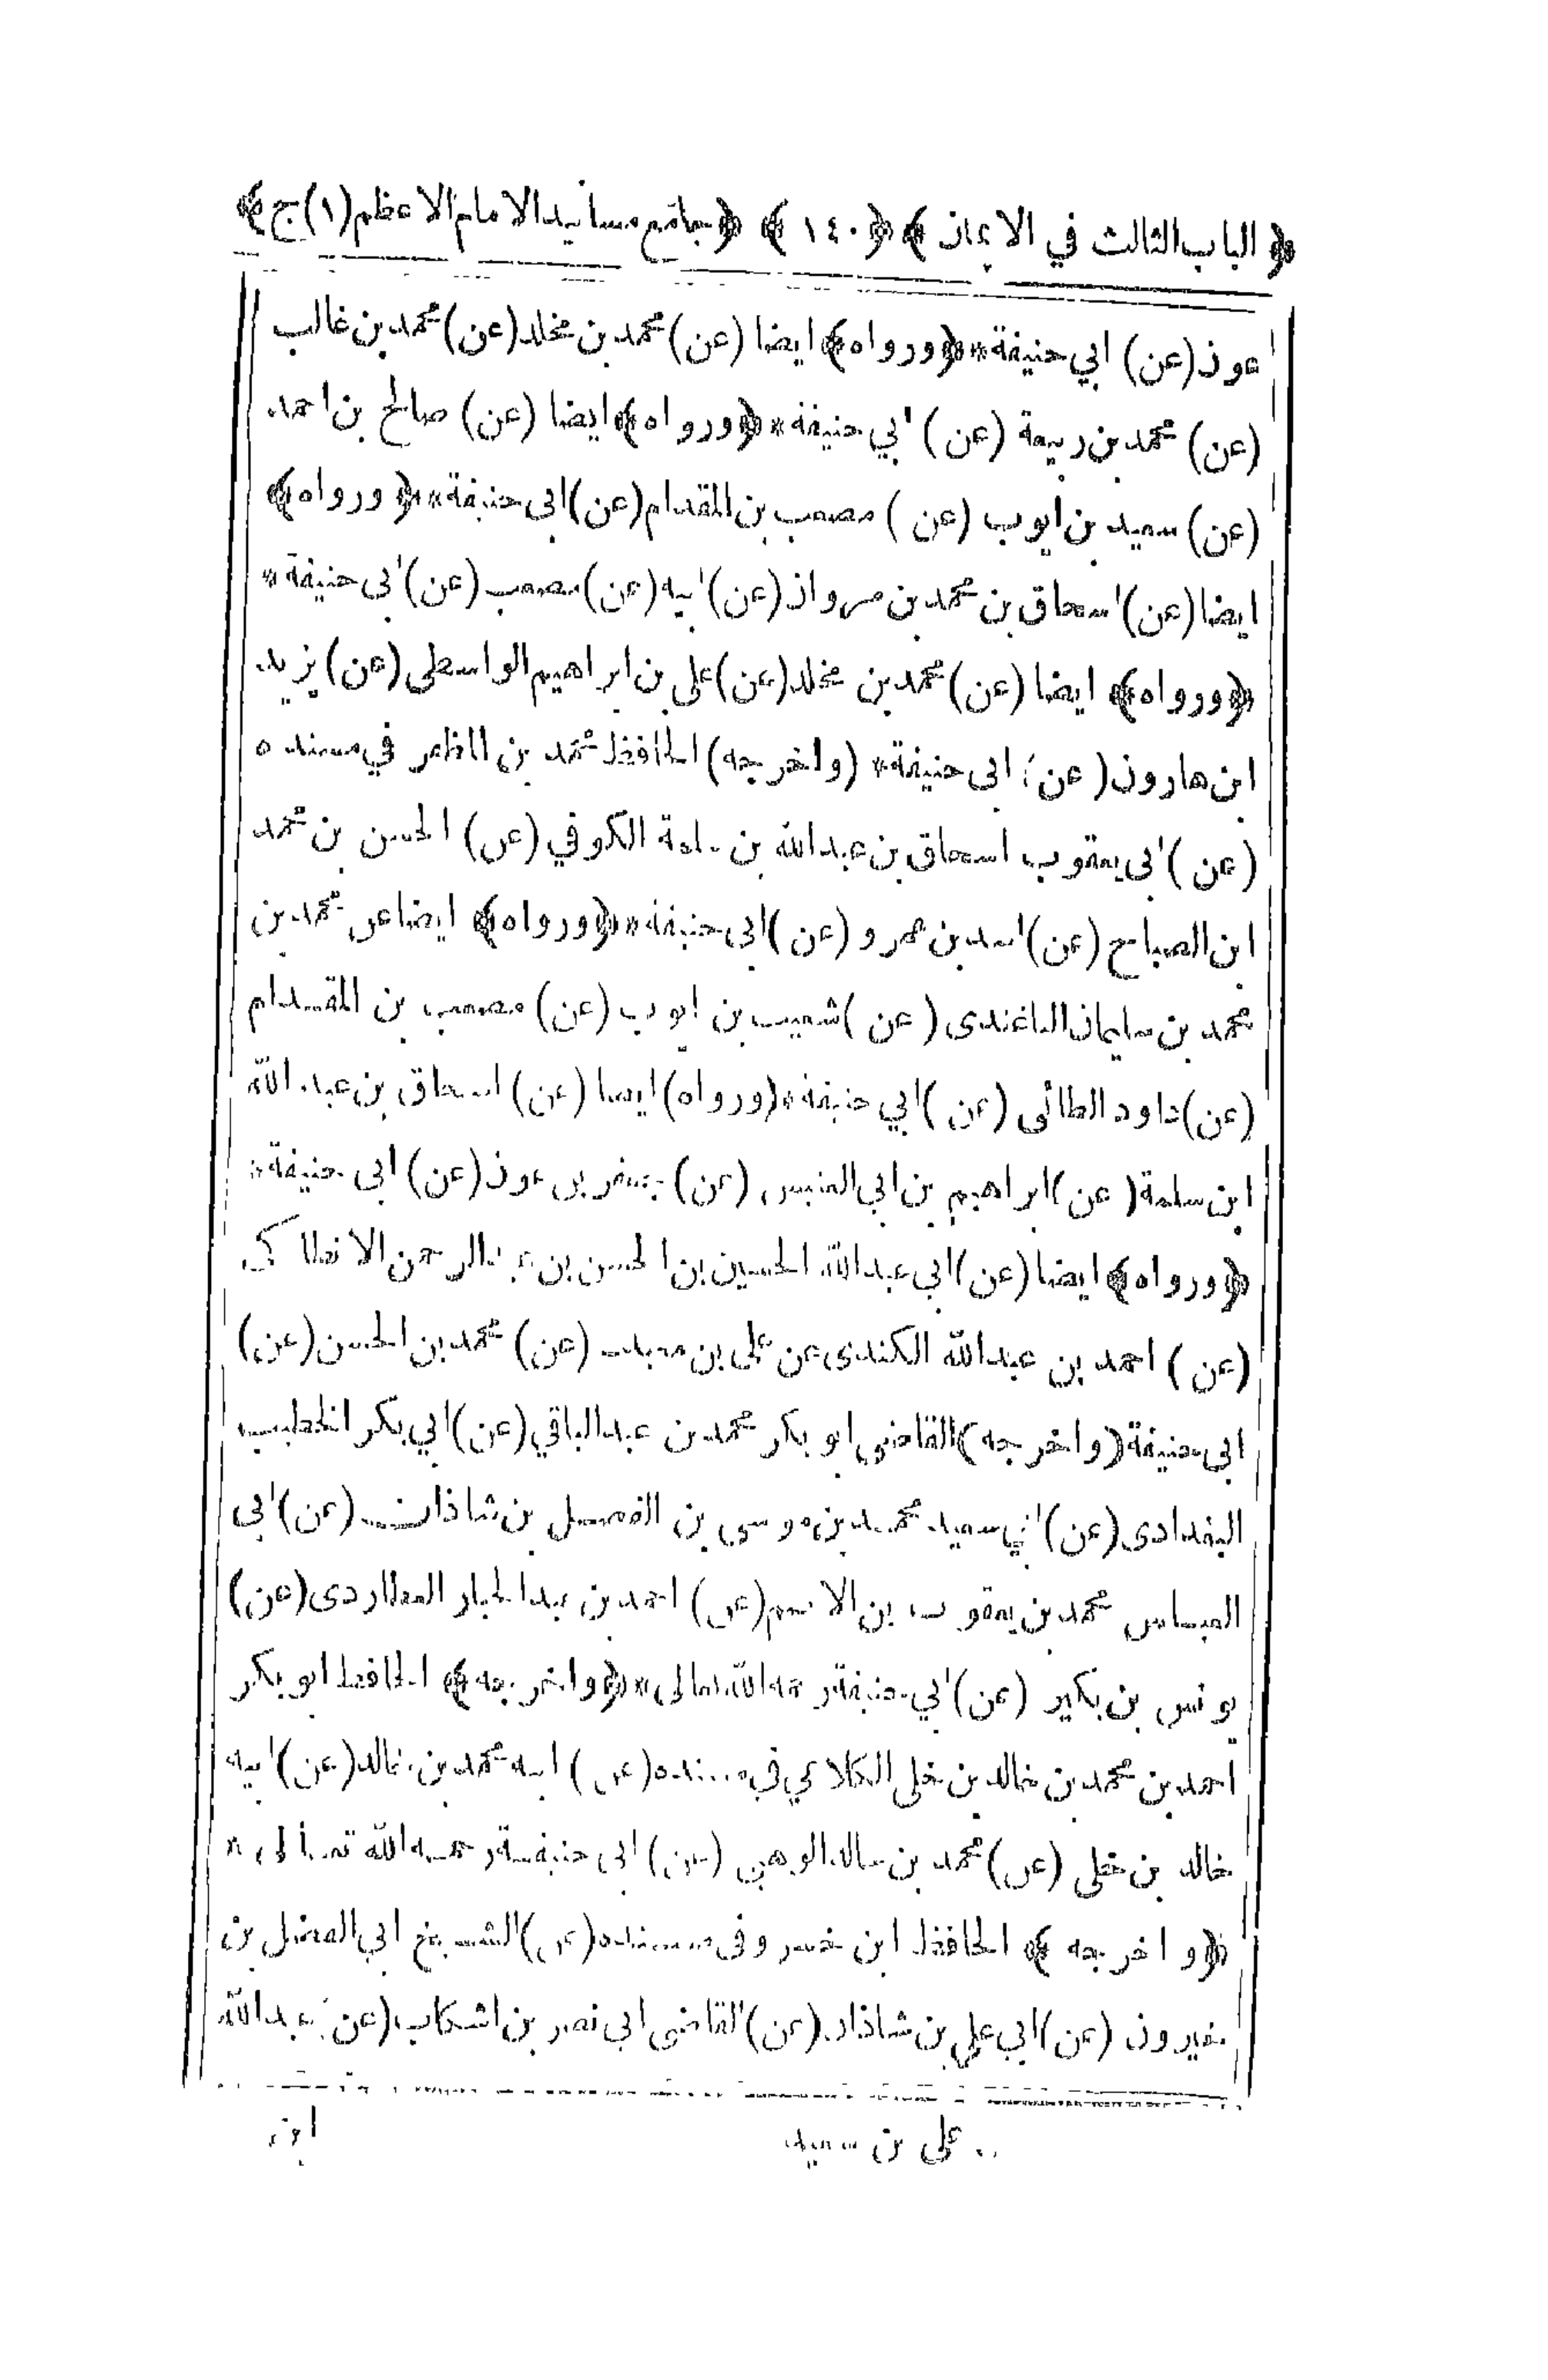 ﴿ الباب الثالث في الايمان ﴾ ﴿ ١٤٠ ﴾ ﴿ جامع مسانيد الامام الاعظم (١) ج ﴾
عون (عن) ابي حنيفة * ﴿ ورواه ﴾ ايضا (عن) محمد بن مخلد (عن) محمد بن غالب
(عن) محمد بن ربيعة (عن) ابي حنيفة * ﴿ ورواه ﴾ ايضا (عن) صالح بن احمد
(عن) سعيد بن ايوب (عن) مصعب بن المقدام (عن) ابى حنيفة * ﴿ ورواه ﴾
ايضا (عن) اسحاق بن محمد بن مروان (عن) ابيه (عن) مصعب (عن) ابى حنيفة *
﴿ ورواه ﴾ ايضا (عن) محمد بن مخلد (عن) على بن ابراهيم الواسطى (عن) يزيد
ابن هارون (عن) ابى حنيفة * (واخرجه) الحافظ محمد بن المظفر في مسنده
(عن) ابى يعقوب اسحاق بن عبدالله بن سلمة الكوفي (عن) الحسن بن محمد
ابن الصباح (عن) اسد بن عمرو (عن) ابى حنيفة * ﴿ ورواه ﴾ ايضا عن محمد بن
محمد بن سليمان الباغندى (عن) شعيب بن ايوب (عن) مصعب بن المقدام
(عن) داود الطائى (عن) ابي حنيفة * (ورواه) ايضا (عن) اسحاق بن عبد الله
ابن سلمة (عن) ابراهيم بن ابي العنبس (عن) جعفر بن عون (عن) ابى حنيفة *
﴿ ورواه ﴾ ايضا (عن) ابي عبدالله الحسين بن الحسن بن عبدالرحمن الانطاكى
(عن) احمد بن عبدالله الكندى عن على بن معبد (عن) محمد بن الحسن (عن)
ابى حنيفة (واخرجه) القاضى ابو بكر محمد بن عبدالباقي (عن) ابي بكر الخطيب
البغدادى (عن) ابي سعيد محمد بن موسى بن الفضل بن شاذان (عن) ابى
العباس محمد بن يعقوب بن الاصم (عن) احمد بن عبدالجبار العطاردى (عن)
يونس بن بكير (عن) ابي حنيفة رحمه الله تعالى * ﴿ واخرجه ﴾ الحافظ ابو بكر
احمد بن محمد بن خالد بن خلى الكلاعي في مسنده (عن) ابيه محمد بن خالد (عن) ابيه
خالد بن خلى (عن) محمد بن خالد الوهبي (عن) ابى حنيفة رحمه الله تعالى *
﴿ واخرجه ﴾ الحافظ ابن خسرو فى مسنده (عن) الشيخ ابي الفضل بن
خيرون (عن) ابي علي بن شاذان (عن) القاضى ابي نصر بن اشكاب (عن) عبدالله
على بن سعيد
ابن